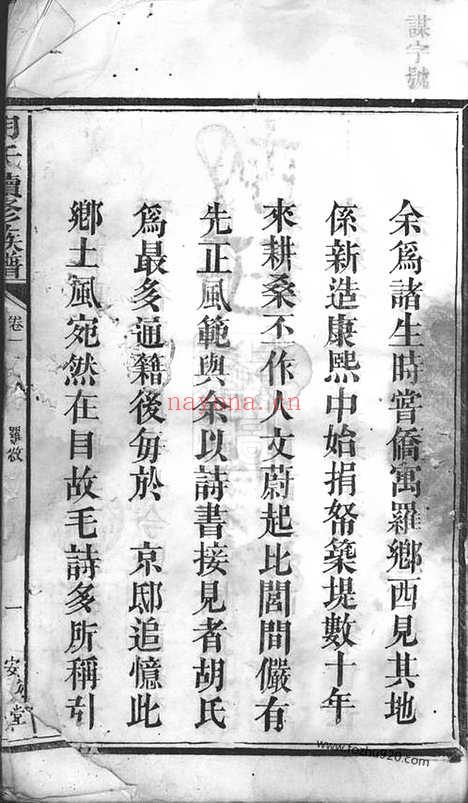 謀字號
余爲諸生時嘗僑寓羅鄉西見其地
係新造康熙中始捐帑築堤數十年
來耕桑丕作人文蔚起比閭間儼有
先正風範與余以詩書接見者胡氏
爲最多通籍後每於 京邸追憶此
鄉土風宛然在目故毛詩多所稱引
胡氏續修族譜
卷一
羅敘
一
安定堂
nayona.cn
www.fozhu920.com